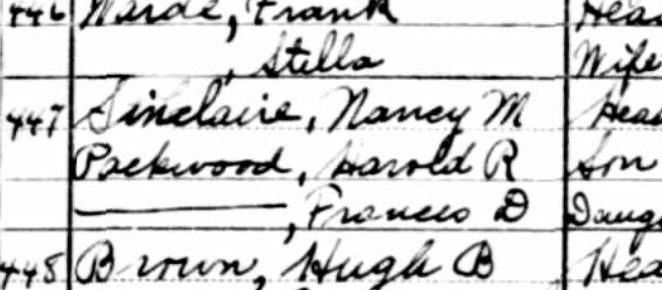 446 Warde, Frank Head
, Stella Wife
447 Sinclaire, Nancy M Head
Packwood, Harold R Son
———, Frances D Daug
448 Brown, Hugh B Hea